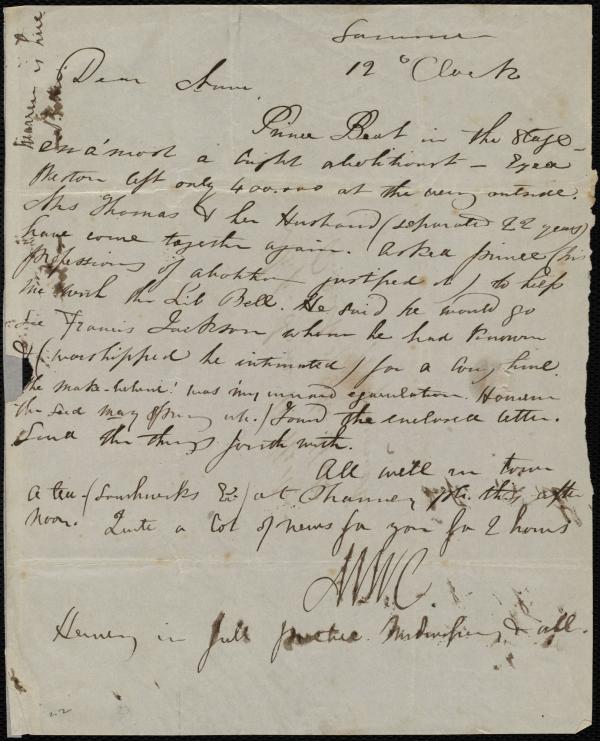 Summer
12 o'Clock
Dear Anne,
Prince Beat in the Stage
en a'most a bright abolitionist - Ezra
Weston left only 400.000 at the very outside.
Mrs Thomas & her Husband (separated 22 years)
have come together again. Asked prince (his
professions of abolition justified it) to help
me with the Lib Bell. He said he would go
see Francis Jackson whom he had known
& (worshipped he intimated) for a long time.
the make-believe! was my inward ejaculation. However
the seed may spring up.) Found the enclosed letter.
Send the things forthwith.
All well in town
a tea (Southwicks &c) at Chauncy place this after
noon. Quite a lot of news for you for 2 hours
MWC.
Henry in full practice. Midwifery & all.
Warren is five